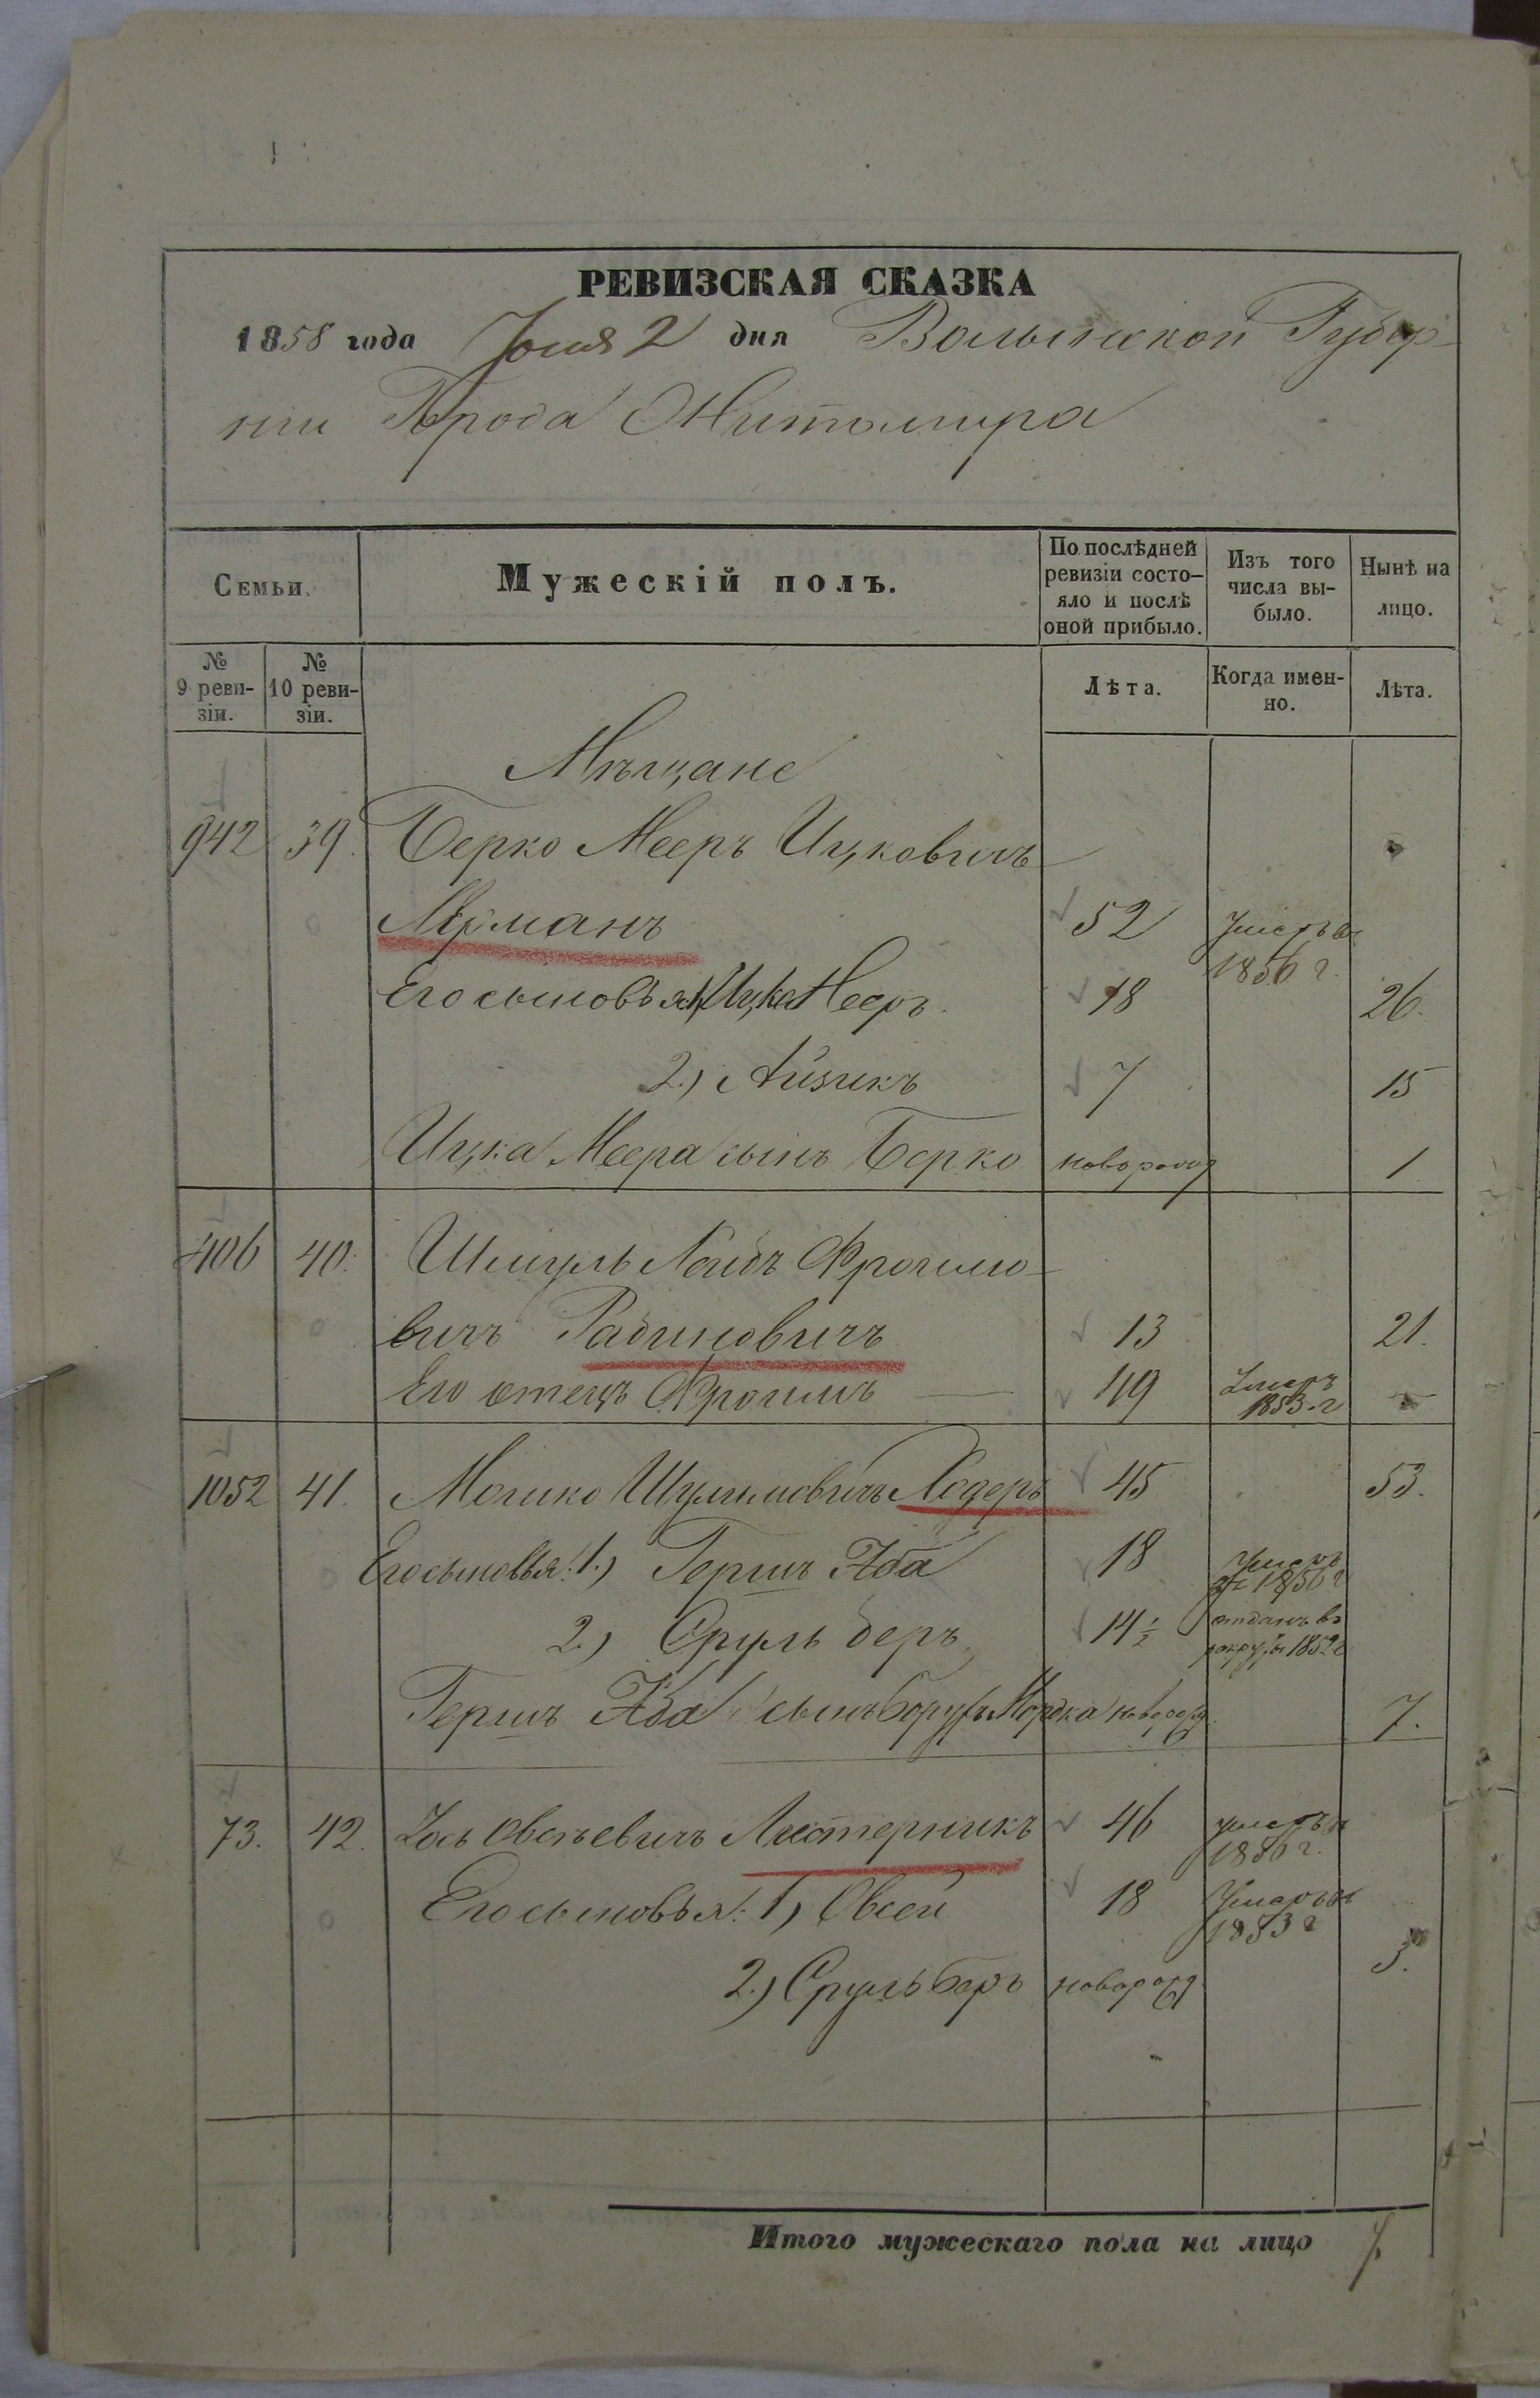 РЕВИЗСКАЯ СКАЗКА
1858 года Іюня 2 дня Волынской Губер-
ніи Города Житомира
Семьи.
Мужескій полъ.
По послѣдней ревизіи состо-
яло и послѣ оной прибыло.
Изъ того числа вы-
было.
Нынѣ на лицо.
№ 9 реви-
зіи.
№ 10 реви-
зіи.
Лѣта.
Когда имен-
но.
Лѣта.
Мѣщане
942 39. Берко Мееръ Ицковичъ
52 умеръ въ
1856 г.
Его сыновья 1) Ицка Мееръ. 18 26.
2.) Айзикъ 7 15
Ицка Меера сынъ Берко новорожд 1
406 40. Шмуль Лейбъ Фроимо-
вичъ Рабиновичъ 13 21.
Его отецъ Фроимъ 49 Умеръ
1853. г
1052 41. Мошко Шулимовичъ 45 53.
Его сыновья: 1.) Гершъ Аба 18 Умеръ
1856 г
2.) Сруль Беръ 14 ½ отданъ въ
рекруты 1852 г
Гершъ Аба сынъ Борухъ Мордка новорожд 7.
73. 42. Іось Овсѣевичъ 46 умеръ въ
1856 г.
Его сыновья: 1) Овсей 18 Умеръ въ
1853 г
2.) Сруль Беръ новорожд. 3.
Итого мужескаго пола на лицо 7.